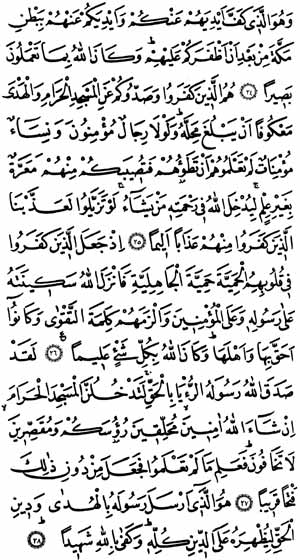 وَهُوَ الَّذِي كَفَّ أَيْدِيَهُمْ عَنْكُمْ وَأَيْدِيَكُمْ عَنْهُمْ بِبَطْنِ
مَكَّةَ مِنْ بَعْدِ أَنْ أَظْفَرَكُمْ عَلَيْهِمْ وَكَانَ اللَّهُ بِمَا تَعْمَلُونَ
بَصِيرًا ﴿٢٤﴾ هُمُ الَّذِينَ كَفَرُوا وَصَدُّوكُمْ عَنِ الْمَسْجِدِ الْحَرَامِ وَالْهَدْيَ
مَعْكُوفًا أَنْ يَبْلُغَ مَحِلَّهُ وَلَوْلَا رِجَالٌ مُؤْمِنُونَ وَنِسَاءٌ
مُؤْمِنَاتٌ لَمْ تَعْلَمُوهُمْ أَنْ تَطَئُوهُمْ فَتُصِيبَكُمْ مِنْهُمْ مَعَرَّةٌ
بِغَيْرِ عِلْمٍ لِيُدْخِلَ اللَّهُ فِي رَحْمَتِهِ مَنْ يَشَاءُ لَوْ تَزَيَّلُوا لَعَذَّبْنَا
الَّذِينَ كَفَرُوا مِنْهُمْ عَذَابًا أَلِيمًا ﴿٢٥﴾ إِذْ جَعَلَ الَّذِينَ كَفَرُوا
فِي قُلُوبِهِمُ الْحَمِيَّةَ حَمِيَّةَ الْجَاهِلِيَّةِ فَأَنْزَلَ اللَّهُ سَكِينَتَهُ
عَلَى رَسُولِهِ وَعَلَى الْمُؤْمِنِينَ وَأَلْزَمَهُمْ كَلِمَةَ التَّقْوَى وَكَانُوا
أَحَقَّ بِهَا وَأَهْلَهَا وَكَانَ اللَّهُ بِكُلِّ شَيْءٍ عَلِيمًا ﴿٢٦﴾ لَقَدْ
صَدَقَ اللَّهُ رَسُولَهُ الرُّءْيَا بِالْحَقِّ لَتَدْخُلُنَّ الْمَسْجِدَ الْحَرَامَ
إِنْ شَاءَ اللَّهُ آمِنِينَ مُحَلِّقِينَ رُءُوسَكُمْ وَمُقَصِّرِينَ
لَا تَخَافُونَ فَعَلِمَ مَا لَمْ تَعْلَمُوا فَجَعَلَ مِنْ دُونِ ذَلِكَ
فَتْحًا قَرِيبًا ﴿٢٧﴾ هُوَ الَّذِي أَرْسَلَ رَسُولَهُ بِالْهُدَى وَدِينِ
الْحَقِّ لِيُظْهِرَهُ عَلَى الدِّينِ كُلِّهِ وَكَفَى بِاللَّهِ شَهِيدًا ﴿٢٨﴾